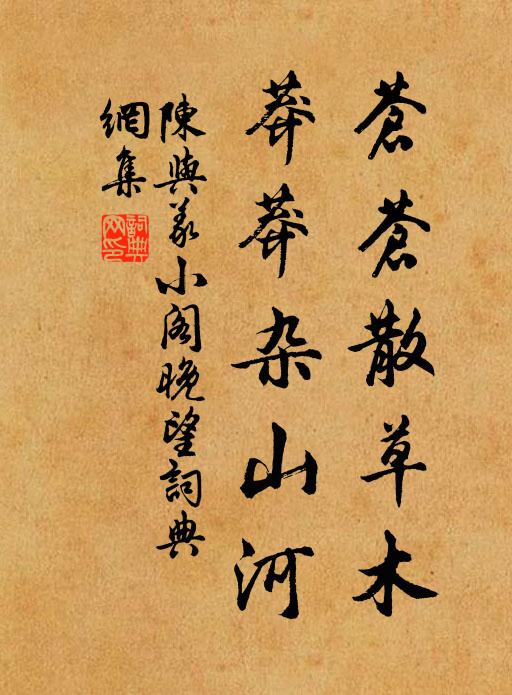 蒼蒼散草木
莽莽杂山河
陳與義小阁晚望詞典
網集
詞典
网印